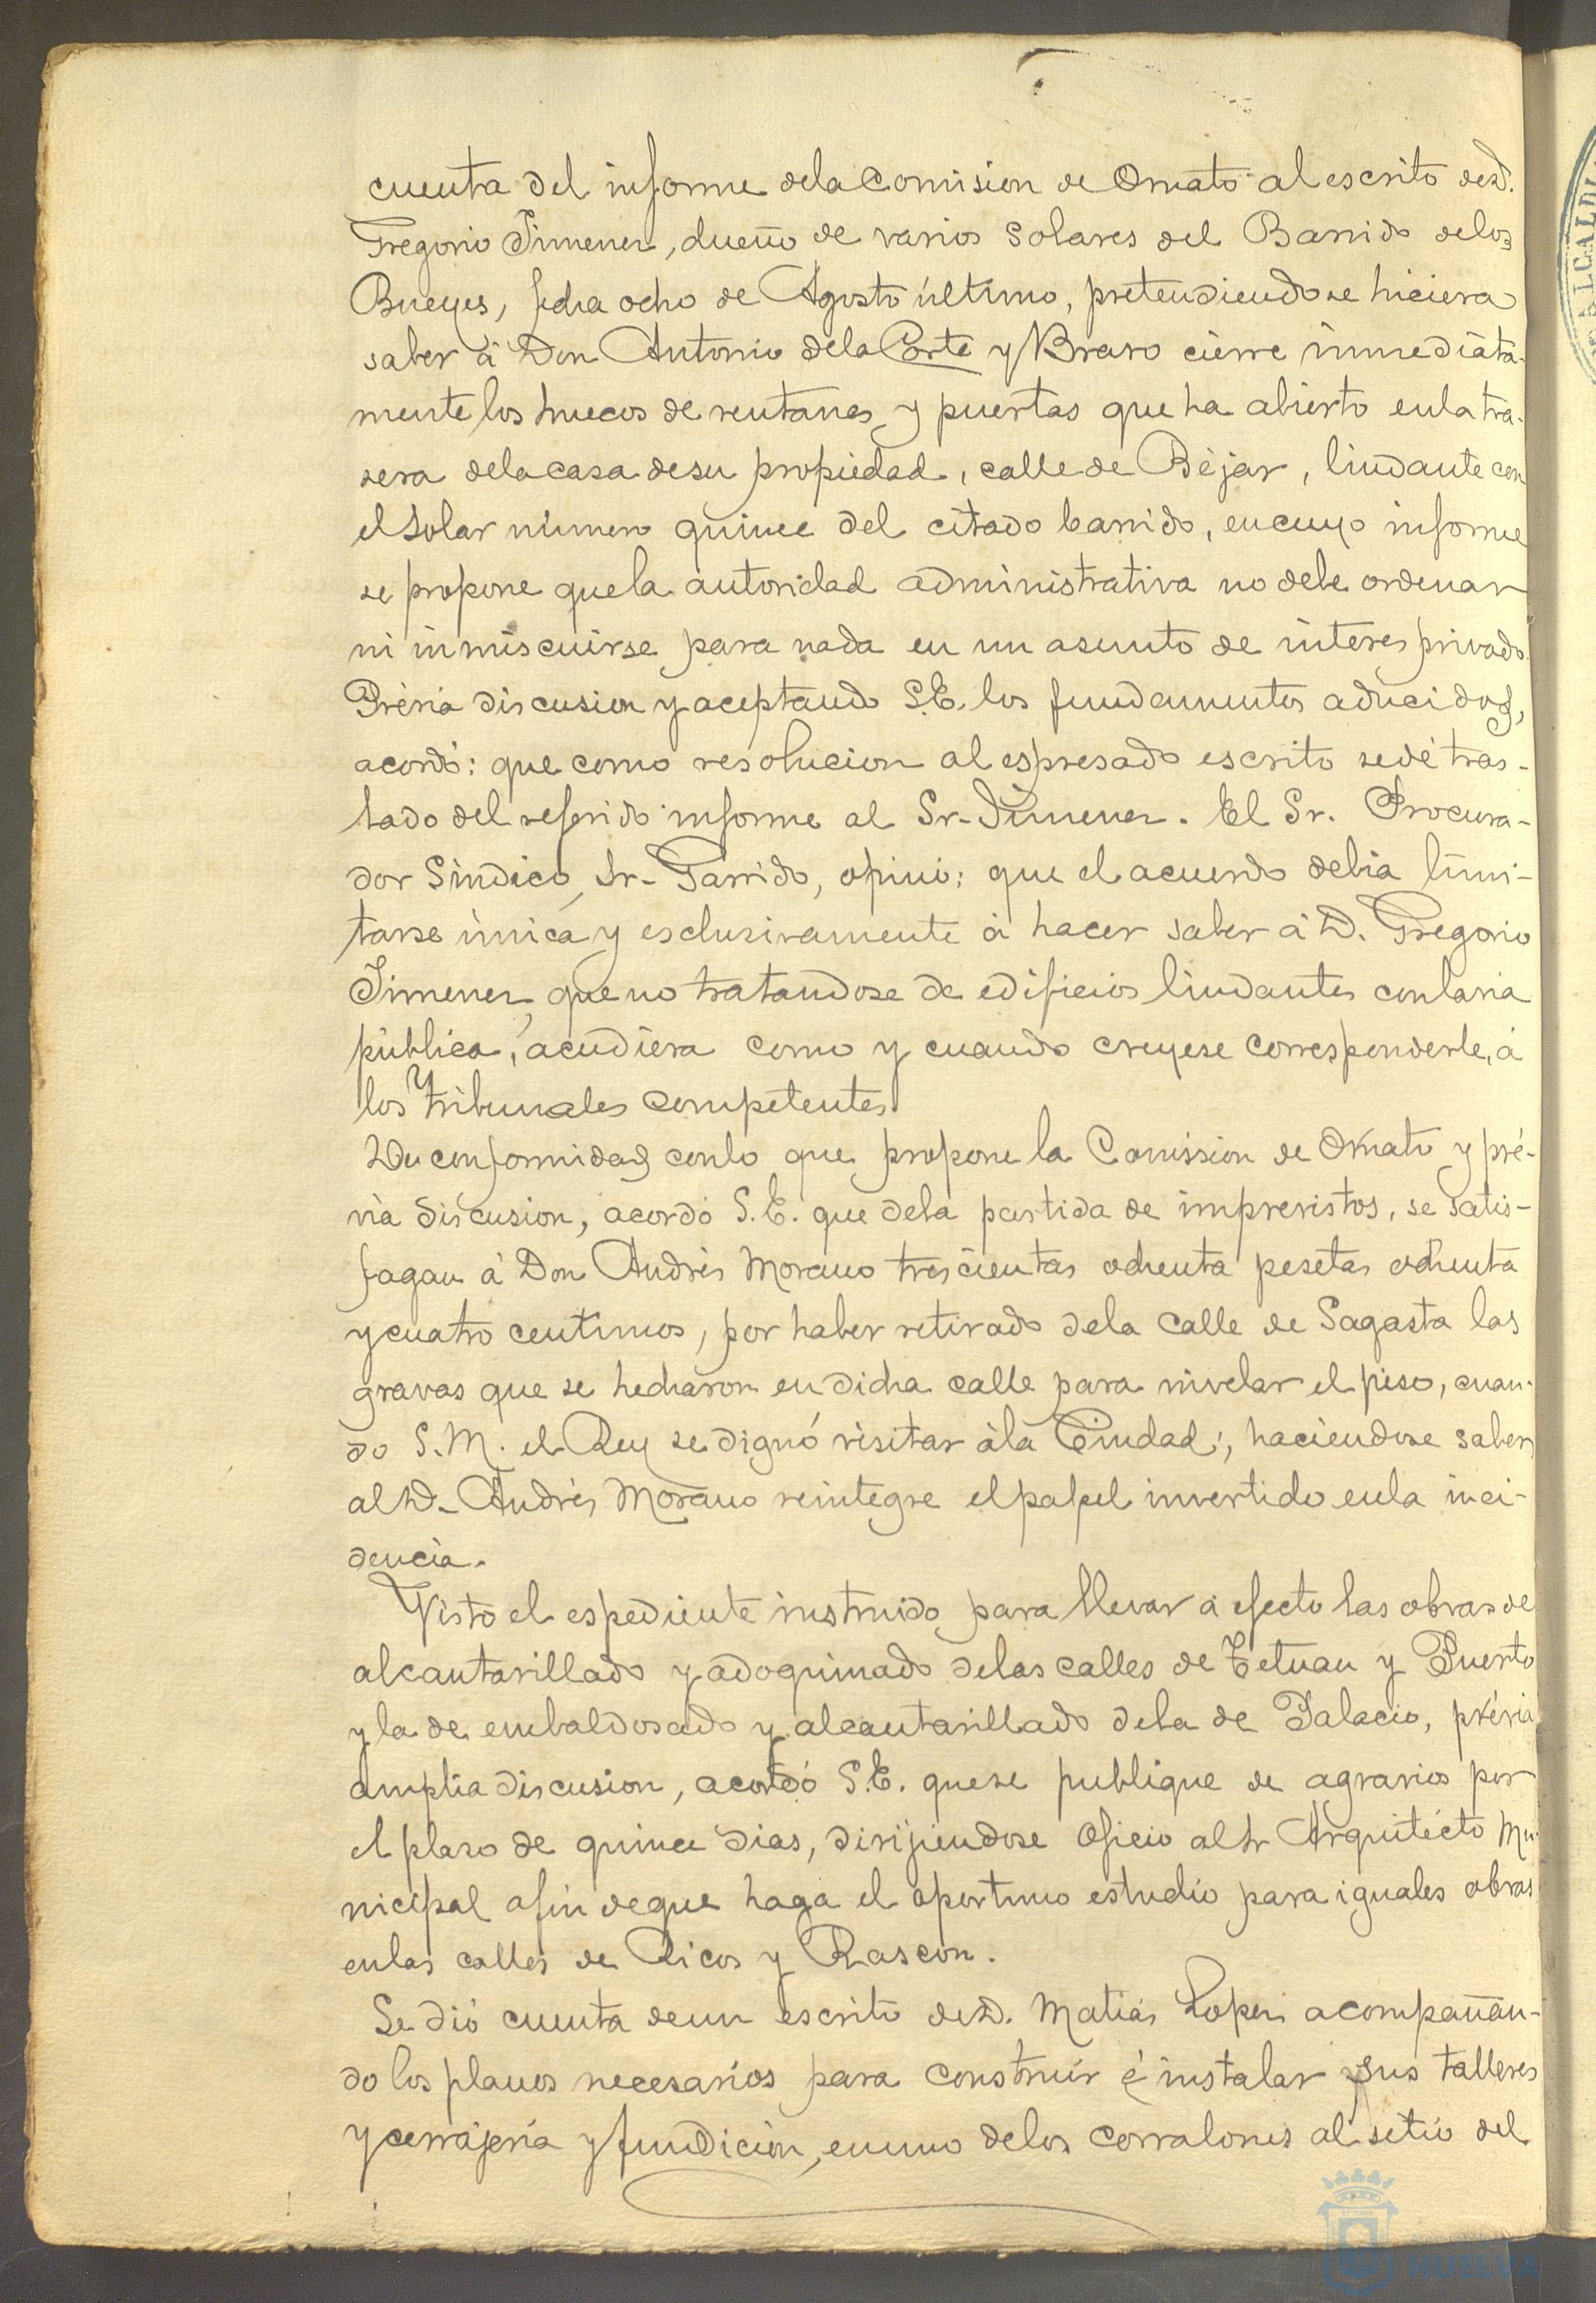 cuenta del informe dela Comision de Ornato al escrito de D.
Gregorio Jimenez, dueño de varios Solares del Barrido delos
Bueyes, fecha ocho de Agosto último, pretendiendose hiciera
saber á Don Antonio dela Corte y Bravo cierre inmediata-
mente los huecos de ventanas y puertas que ha abierto enla tra-
sera dela casa desu propiedad, calle de Béjar, lindante con
el Solar número quince del citado barrido, encuyo informe
se propone quela autoridad administrativa no debe ordenar
ni inmiscuirse para nada en un asunto de interes privado.
Prévia discusion y aceptando S.E. los fundamentos aducidos,
acordó: que como resolucion al espresado escrito sedé tras-
lado del referido informe al Sr. Jimenez. El Sr. Procura-
dor Síndico, Sr. Garrido, opinó: que el acuerdo debia limi-
tarse única y esclusivamente á hacer saber á D. Gregorio
Jimenez, que no tratandose de edificios lindantes conlavia
pública, acudiera como y cuando creyese corresponderle, á
los Tribunales competentes.
De conformidad conlo que propone la Comission de Ornato y pré-
via discusion, acordó S.E. que dela partida de imprevistos, se satis-
fagan á Don Andrés Morano trescientas ochenta pesetas ochenta
y cuatro centimos, por haber retirado dela calle de Sagasta las
gravas que se hecharon en dicha calle para nivelar el piso, cuan-
do S.M. el Rey se dignó visitar ála Ciudad; haciendose saber
al D. Andrés Morano reintegre el papel invertido enla inci-
dencia.
Visto el espediente instruido para llevar á efecto las obras de
alcantarillado y adoquinado delas calles de Tetuan y Puerto
y la de embaldosado y alcantarillado dela de Palacio, prévia
amplia discusion, acordó S.E. quese publique de agravios por
el plazo de quince dias, dirijiendose oficio al Sr Arquitécto Mu-
nicipal afin deque haga el oportuno estudio para iguales obras
enlas calles de Ricos y Rascon.
Se dió cuenta deun escrito de D. Matias Lopez acompañan-
do los planos necesarios para construir é instalar sus talleres
y cerrajería y fundicion, enuno delos corralones al sitio del
HUELVA